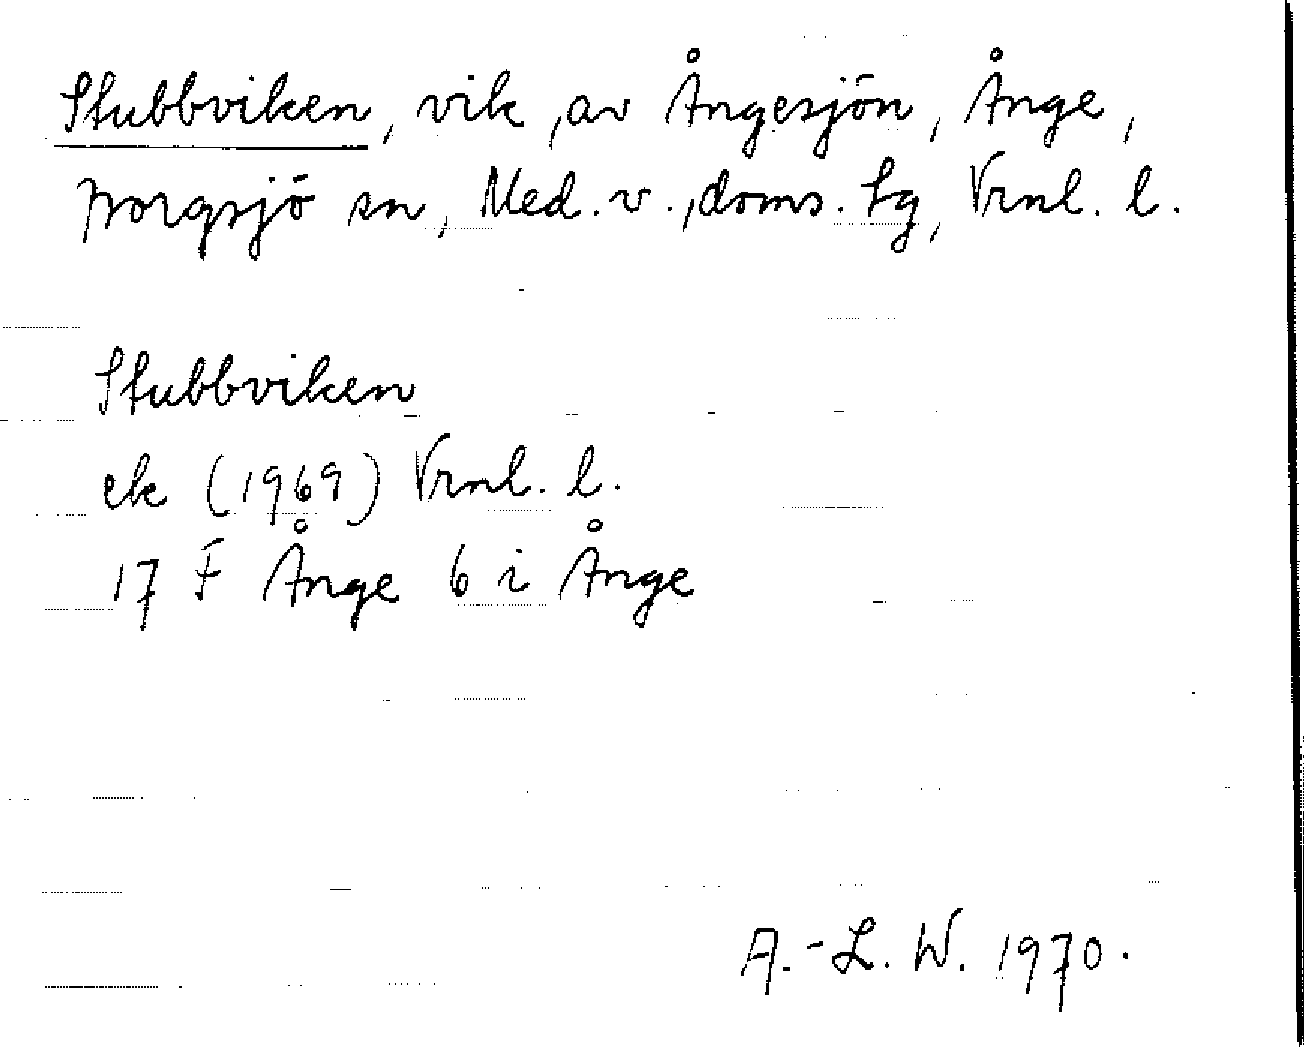 Stubbviken, vik, av Ångesjön, Ånge,
Borgsjö sn, Med. v., doms. tg, Vrnl. l.
Stubbviken
ek (1969) Vrnl. l.
17 F Ånge 6 i Ånge
A.-L. W. 1970.